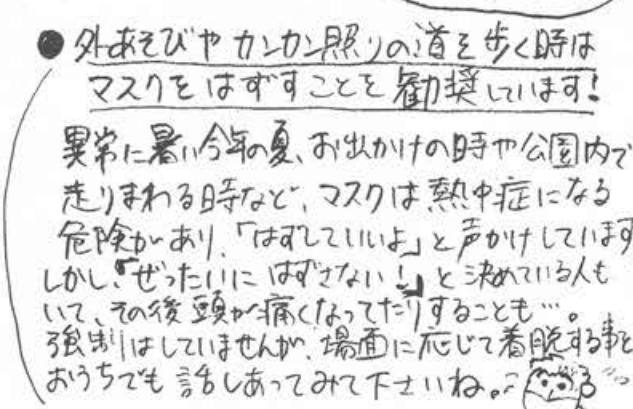 ● 外あそびや カンカン照りの道を歩く時は
マスクをはずすことを勧奨しています!
異常に暑い今年の夏、お出かけの時や公園内で
走りまわる時など、マスクは熱中症になる
危険があり、「はずしていいよ」と声かけしています
しかし、「ぜったいにはずさない!」と決めている人も
いて、その後頭が痛くなってたりすることも…。
強制はしていませんが、場面に応じて着脱する事を
おうちでも話しあってみて下さいね。